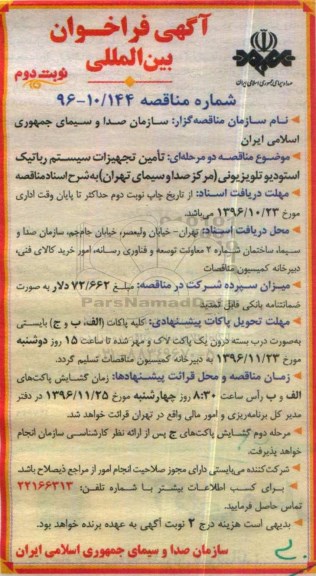 آگهی فراخوان
بین‌المللی
نوبت دوم
صدا و سیمای جمهوری اسلامی ایران
شماره مناقصه ۹۶-۱۰/۱۴۴
نام سازمان مناقصه‌گزار: سازمان صدا و سیمای جمهوری
اسلامی ایران
موضوع مناقصه دو مرحله‌ای: تأمین تجهیزات سیستم رباتیک
استودیو تلویزیونی (مرکز صدا و سیمای تهران) به شرح اسناد مناقصه
مهلت دریافت اسناد: از تاریخ چاپ نوبت دوم حداکثر تا پایان وقت اداری
مورخ ۱۳۹۶/۱۰/۲۳ می‌باشد.
محل دریافت اسناد: تهران- خیابان ولیعصر، خیابان جام‌جم، سازمان صدا و
سیما، ساختمان شماره ۲ معاونت توسعه و فناوری رسانه، امور خرید کالای فنی،
دبیرخانه کمیسیون مناقصات
میزان سپرده شرکت در مناقصه: مبلغ ۷۲/۶۶۲ دلار به صورت
ضمانتنامه بانکی قابل تمدید
مهلت تحویل پاکات پیشنهادی: کلیه پاکات (الف، ب و ج) بایستی
به‌صورت درب بسته درون یک پاکت لاک و مهر شده تا ساعت ۱۵ روز دوشنبه
مورخ ۱۳۹۶/۱۱/۲۳ به دبیرخانه کمیسیون مناقصات تسلیم گردد.
زمان مناقصه و محل قرائت پیشنهادها: زمان گشایش پاکت‌های
الف و ب رأس ساعت ۸:۳۰ روز چهارشنبه مورخ ۱۳۹۶/۱۱/۲۵ در دفتر
مدیر کل برنامه‌ریزی و امور مالی واقع در تهران قرائت خواهد شد.
مرحله دوم گشایش پاکت‌های ج پس از ارائه نظر کارشناسی سازمان انجام
خواهد پذیرفت.
شرکت‌کننده می‌بایستی دارای مجوز صلاحیت انجام امور از مراجع ذیصلاح باشد.
برای کسب اطلاعات بیشتر با شماره تلفن: ۲۲۱۶۶۳۱۳
تماس حاصل فرمایید.
بدیهی است هزینه درج ۲ نوبت آگهی به عهده برنده خواهد بود.
سازمان صدا و سیمای جمهوری اسلامی ایران